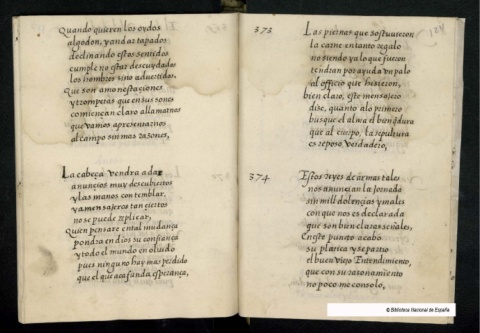 Quando quieren los oydos
algodon, y andar tapados
declinando estos sentidos
cumple no estar descuydados
los hombres sino advertidos.
Que son amonestaçiones
y trompetas que en sus sones
comiençan claro a llamarnos
que vamos a presentarnos
al campo sin mas razones,
La cabeça vendra a dar
anunçios muy descubiertos
y las manos con temblar,
y a mensajeros tan çiertos
no se puede replicar,
Quien pensare en tal mudança
pondra en dios su confiança
y todo el mundo en oluido
pues ninguno hay mas perdido
que el que aca funda esperança,
373
124
Las piernas que sostuuieron
la carne en tanto regalo
no siendo ya lo que fueron
tendran por ayuda un palo
al officio que hizieron,
bien claro, este mensajero
dize, quanto a lo primero
busque el alma
que al cuerpo, la sepultura
es reposo verdadero,
374
Estos reyes de armas tales
nos anunçian la jornada
sin mill dolençias y males
con que nos es declarada
que son bien claras señales,
En este punto acabó
su platica y se partio
el buen viejo Entendimiento,
que con su razonamiento
no poco me consolo,
© Biblioteca Nacional de España